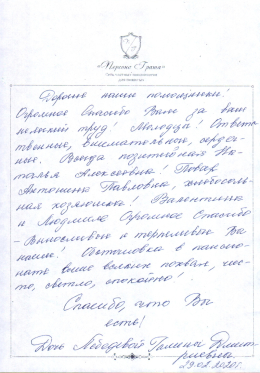 Дорогие наши помощники!
Огромное Спасибо Вам за ваш
нелёгкий труд! Молодцы! Ответс
твенные, внимательные, сердеч
ные. Всегда позитивная На-
талья Алексеевна! Повар
Антонина Павловна, хлебосоль
ная хозяюшка! Валентина
и Людмила Огромное Спасибо
Выносливые и терпеливые Вы
наши! Обстановка в пансио
нате выше всяких похвал, чис-
то, светло, спокойно!
Спасибо, что Вы
есть!
Дочь Лебедевой Галины Дмит
риевны.
29.02.2020г.